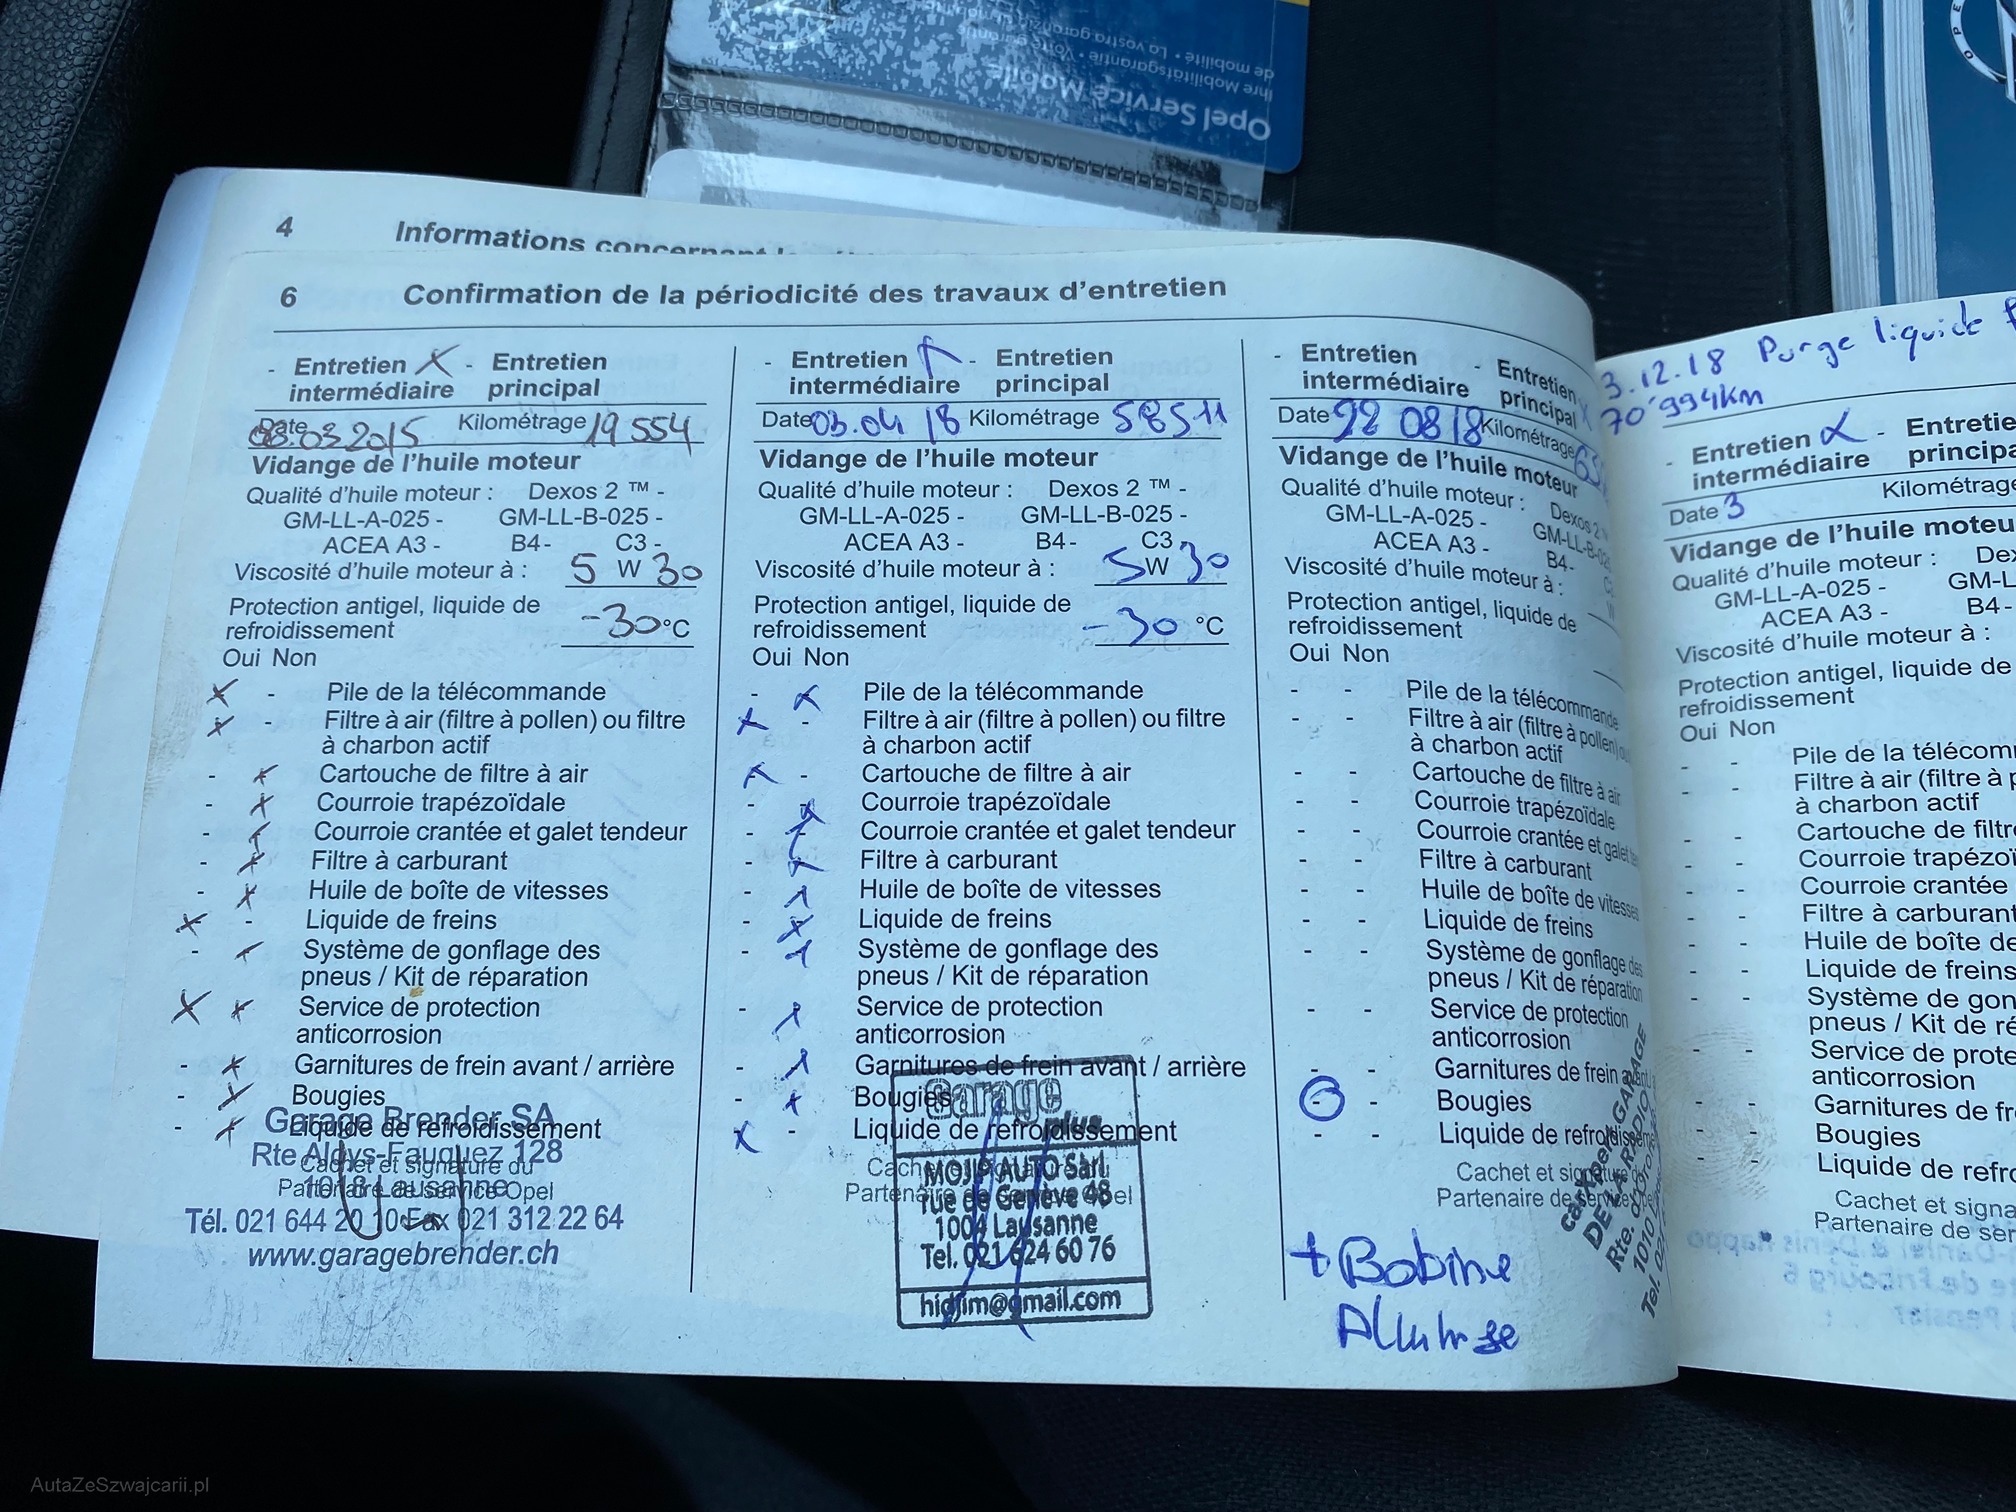 Opel Service Mobile
Ihre Mobilitätsgarantie • Votre garantie
de mobilité • La vostra garanzia
4 Informations concernant
6 Confirmation de la périodicité des travaux d'entretien
- Entretien X - Entretien
intermédiaire principal
Date 03.2015 Kilométrage 19 554
Vidange de l'huile moteur
Qualité d'huile moteur : Dexos 2 ™ -
GM-LL-A-025 - GM-LL-B-025 -
ACEA A3 - B4- C3 -
Viscosité d'huile moteur à : 5 W 30
Protection antigel, liquide de
refroidissement -30 °C
Oui Non
X - Pile de la télécommande
X - Filtre à air (filtre à pollen) ou filtre
à charbon actif
- X Cartouche de filtre à air
- X Courroie trapézoïdale
- X Courroie crantée et galet tendeur
- X Filtre à carburant
- X Huile de boîte de vitesses
X - Liquide de freins
- X Système de gonflage des
pneus / Kit de réparation
X X Service de protection
anticorrosion
- X Garnitures de frein avant / arrière
- X Bougies
- X Liquide de refroidissement
Cachet et signature du
Partenaire de service Opel
Garage Brender SA
Rte Aloys-Fauquez 128
1018 Lausanne
Tél. 021 644 20 10 Fax 021 312 22 64
www.garagebrender.ch
- Entretien X - Entretien
intermédiaire principal
Date 03.04 18 Kilométrage 58511
Vidange de l'huile moteur
Qualité d'huile moteur : Dexos 2 ™ -
GM-LL-A-025 - GM-LL-B-025 -
ACEA A3 - B4- C3
Viscosité d'huile moteur à : 5 W 30
Protection antigel, liquide de
refroidissement -30 °C
Oui Non
- X Pile de la télécommande
X - Filtre à air (filtre à pollen) ou filtre
à charbon actif
X - Cartouche de filtre à air
- X Courroie trapézoïdale
- X Courroie crantée et galet tendeur
- X Filtre à carburant
- X Huile de boîte de vitesses
- X Liquide de freins
- X Système de gonflage des
pneus / Kit de réparation
- X Service de protection
anticorrosion
- X Garnitures de frein avant / arrière
- X Bougies
X - Liquide de refroidissement
Partenaire de service Opel
Garage
plus
MOJIP AUTO Sàrl
rue de Genève 48
1004 Lausanne
Tel. 021 624 60 76
@gmail.com
- Entretien - Entretien
intermédiaire principal X
Date 22 08 18 Kilométrage
Vidange de l'huile moteur
Qualité d'huile moteur : Dexos 2
GM-LL-A-025 - GM-LL-B-025
ACEA A3 - B4-
Viscosité d'huile moteur à : W
Protection antigel, liquide de
refroidissement
Oui Non
- - Pile de la télécommande
- - Filtre à air (filtre à pollen) ou
à charbon actif
- - Cartouche de filtre à air
- - Courroie trapézoïdale
- - Courroie crantée et galet
- - Filtre à carburant
- - Huile de boîte de vitesses
- - Liquide de freins
- - Système de gonflage des
pneus / Kit de réparation
- - Service de protection
anticorrosion
- - Garnitures de frein avant
- - Bougies
- - Liquide de refroidissement
Cachet et signature
Partenaire de service
carXpert GARAGE
DE LA RADIO
Rte. d'Oron
1010
Tel. 021
+ Bobine
Allumage
3.12.18 Purge liquide
70'994km
- Entretien X - Entretie
intermédiaire principa
Date 3 Kilométrage
Vidange de l'huile moteu
Qualité d'huile moteur : Dex
GM-LL-A-025 - GM-L
ACEA A3 - B4-
Viscosité d'huile moteur à :
Protection antigel, liquide de
refroidissement
Oui Non
- - Pile de la télécom
- - Filtre à air (filtre à p
à charbon actif
- - Cartouche de filtre
- - Courroie trapézoï
- - Courroie crantée
- - Filtre à carburant
- - Huile de boîte de
- - Liquide de freins
- - Système de gon
pneus / Kit de ré
- - Service de prote
anticorrosion
- - Garnitures de fr
- - Bougies
- - Liquide de refro
Cachet et signa
Partenaire de ser
AutaZeSzwajcarii.pl